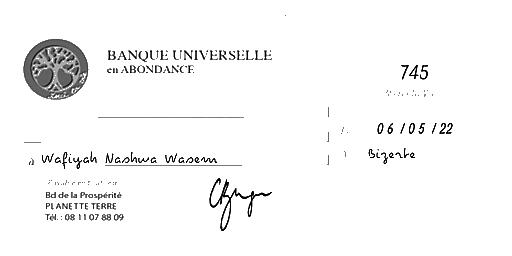 BANQUE UNIVERSELLE
en ABONDANCE
745
06/05/22
à Wafiyah Nashwa Wasem
Bizerte
Bd de la Prospérité
PLANETTE TERRE
Tél. : 08 11 07 88 09